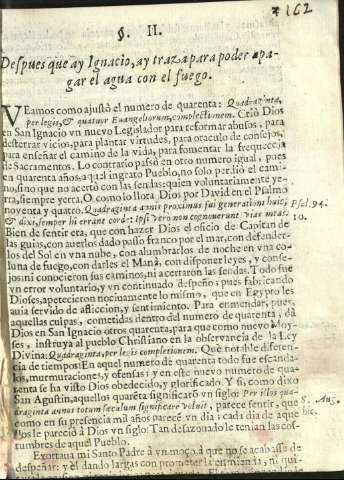 162
§. II.
Despues que ay Ignacio, ay traza para poder apa-
gar el agua con el fuego.
VEamos como ajustò el numero de quarenta: Quadraginta,
per legis, & quatuor Euangeliorum, complectionem. Criò Dios
en San Ignacio vn nueuo Legislador para reformar abusos, para
desterrar vicios, para plantar virtudes, para oraculo de consejos,
para enseñar el camino de la vida, para fomentar la frequencia
de Sacramentos. Lo contrario passò en otro numero igual, pues
en quarenta años, aquel ingrato Pueblo, no solo perdiò el cami-
no, sino que no acertò con las sendas: quien voluntariamente ye-
rra, siempre yerra. O como lo llora Dios por Dauid en el Psalmo
nouenta y quatro. Quadraginta annis proximus fui generationi huic, Psal. 94.
& dixi, semper hi errant corde: ipsi vero non cognouerunt vias meas. 10.
Bien de sentir era, que con hazer Dios el oficio de Capitan de
las guias, con auerlos dado passo franco por el mar, con defender-
los del Sol en vna nube, con alumbrarlos de noche en vna co-
luna de fuego, con darles el Manà, con disponer leyes, y conse-
jos, ni conocieron sus caminos, ni acertaron las sendas. Todo fue
vn error voluntario, y vn continuado despeño; pues fabricando
Dioses, apetecieron nociuamente lo mismo, que en Egypto les
auia seruido de afliccion, y sentimiento. Para enmendar, pues,
aquellas culpas, cometidas dentro del numero de quarenta, dà
Dios en San Ignacio otros quarenta, para que como nueuo Moy-
ses, instruya al pueblo Christiano en la obseruancia de la Ley
Diuina: Quadraginta, per legis completionem. Què notable diferen-
cia de tiempos! En aquel numero de quarenta todo fue escanda-
los, murmuraciones, y ofensas; y en este nueuo numero de quaren-
ta se ha visto Dios obedecido, y glorificado. Y si, como dixo
San Agustin, aquellos quarẽta significarõ vn siglo: Per illos qua- S. Aug.
draginta annos totum sæculum significare voluit, parece sentir, que hic.
como en su presencia mil años parecẽ vn dia; cada dia de aque
llos le pareciò à Dios vn siglo: Tan desazonado le tenian las cos-
tumbres de aquel Pueblo.
Exortaua mi Santo Padre à vn moço à que no se acabasse de
despeñar: y èl dando largas con prometer la enmienda, ni qui-